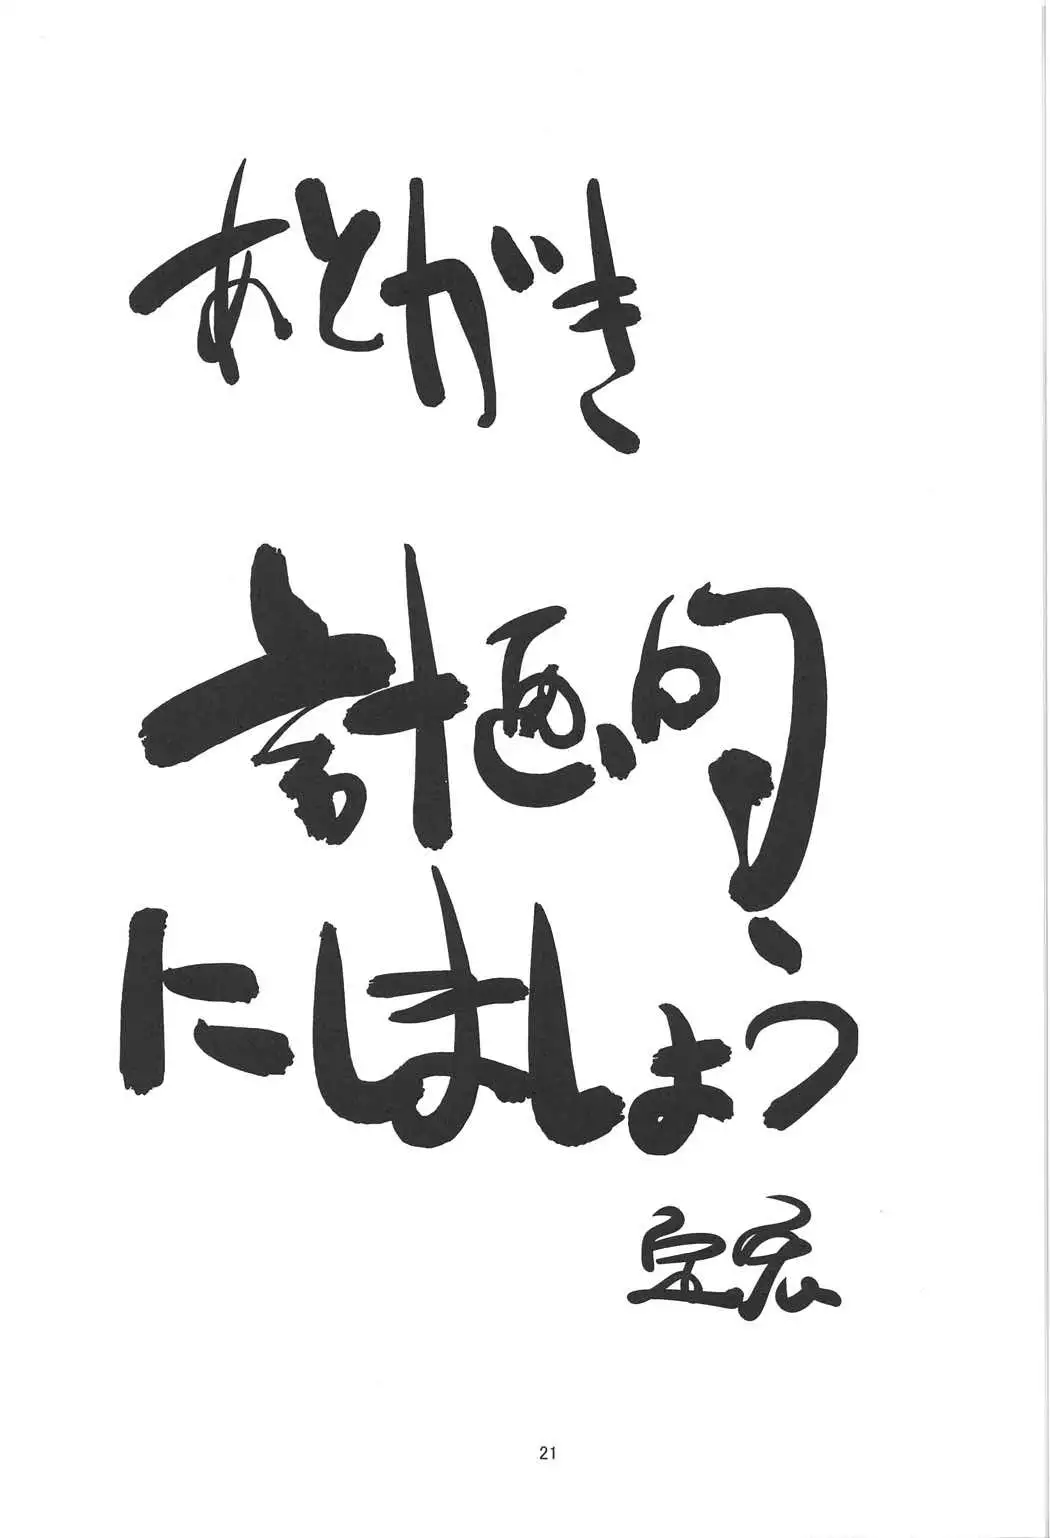 あとがき
計画的
にしましょう
定宏
21